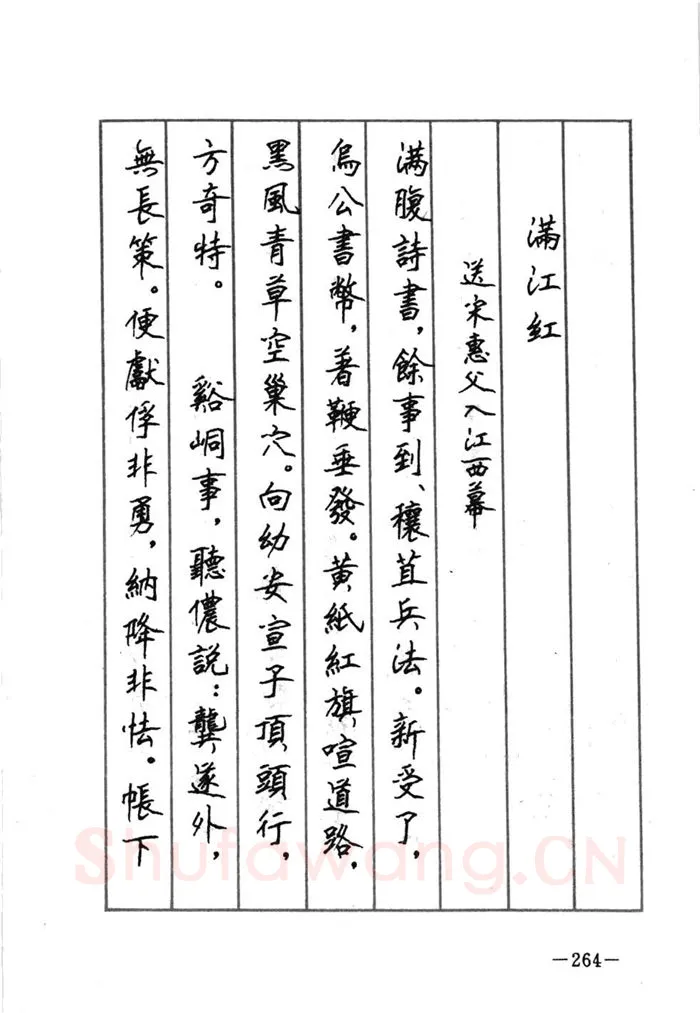 滿江紅
送宋惠父入江西幕
滿腹詩書，餘事到、穰苴兵法。新受了，
烏公書幣，著鞭垂發。黃紙紅旗喧道路，
黑風青草空巢穴。向幼安宣子頂頭行，
方奇特。 谿峒事，聽儂説：龔遂外，
無長策。便獻俘非勇，納降非怯。帳下
Shufawang.CN
—264—